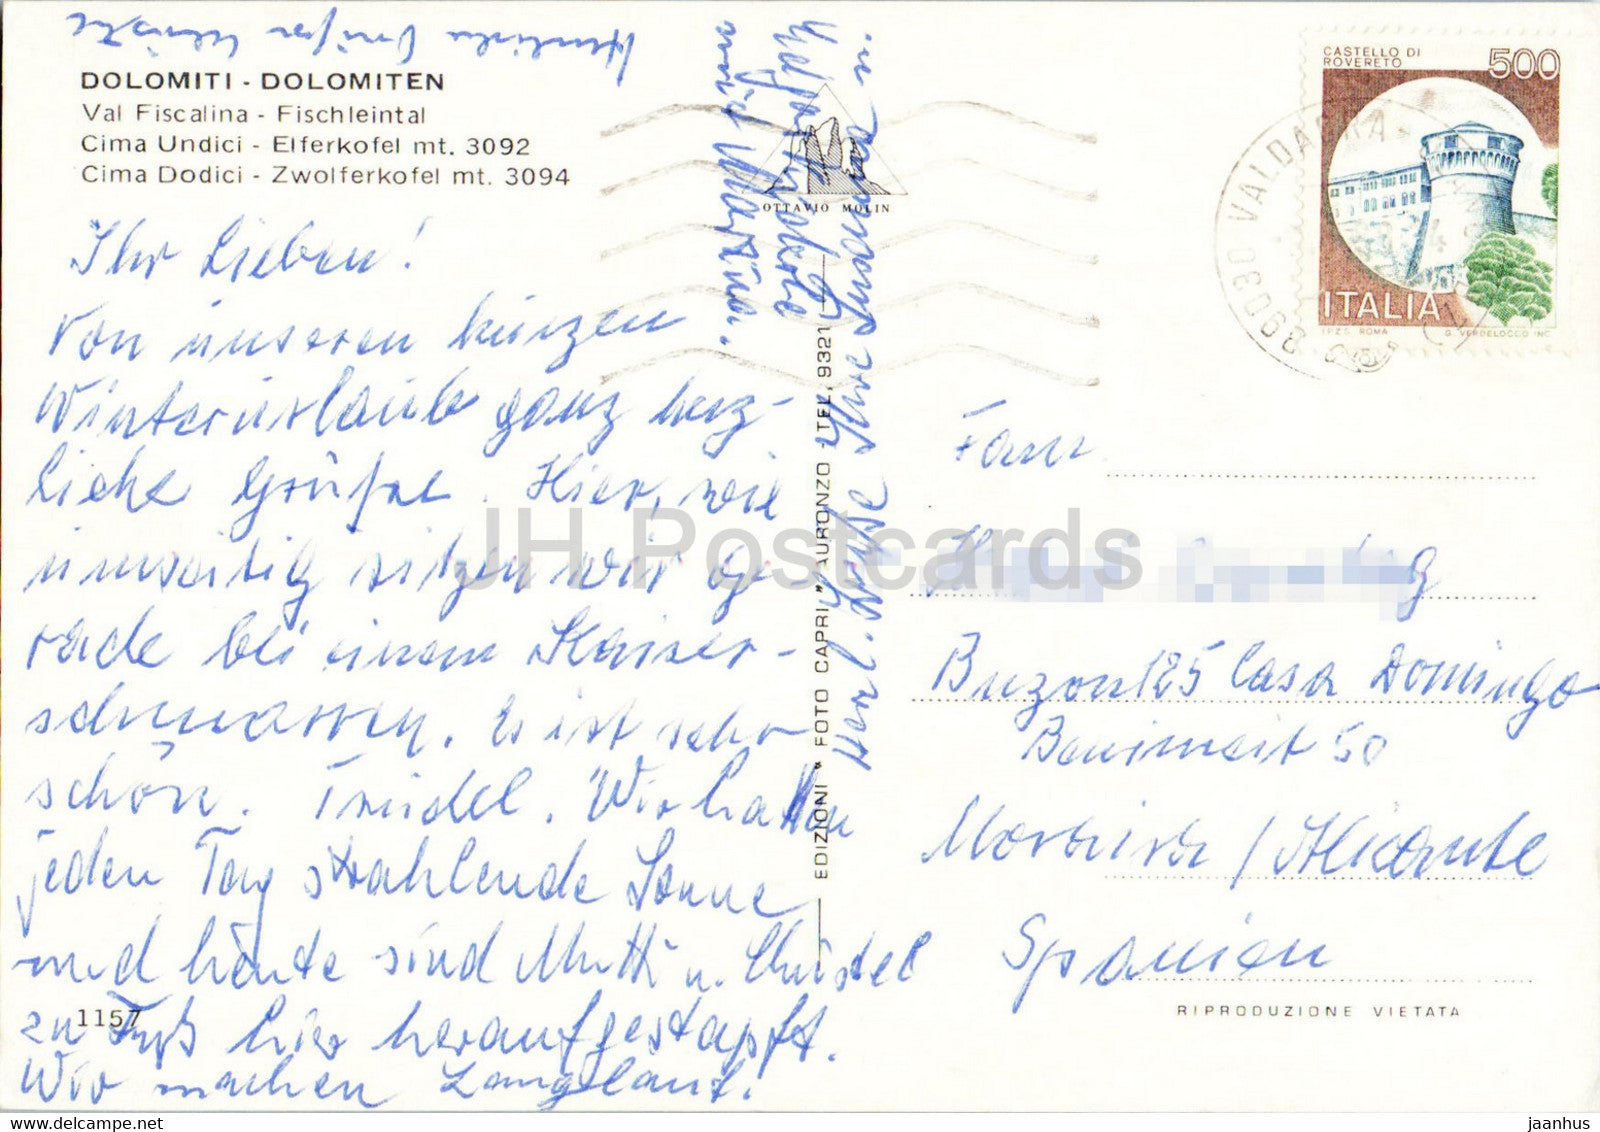 DOLOMITI - DOLOMITEN
Val Fiscalina - Fischleintal
Cima Undici - Elferkofel mt. 3092
Cima Dodici - Zwolferkofel mt. 3094
Ihr Lieben!
Von unseren kurzen
Winterurlaub ganz herz-
liche Grüße. Hier, wie
umseitig sitzen wir ge-
rade bei einem Kaiser-
schmarren. Es ist sehr
schön. Trudel. Wir hatten
jeden Tag strahlende Sonne
und heute sind Mutti u. Christel
zu Fuß hier heraufgestapft.
Wir machen Langlauf.
1157
Herzl. Grüße Ihre
u.
und Martina.
OTTAVIO MOLIN
EDIZIONI "FOTO CAPRI" AURONZO - TEL. 9321
CASTELLO DI
ROVERETO
500
ITALIA
I.P.Z.S. ROMA
G. VERDELOCCO INC.
39030 VALDAORA
Frau
Buzon 125 Casa Domingo
Benimeit 50
Moraira / Alicante
Spanien
RIPRODUZIONE VIETATA
JH Postcards
www.delcampe.net
jaanhus